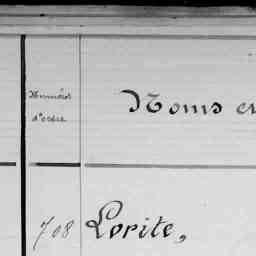 Numéros
d'ordre
Noms et
708 Lorite,